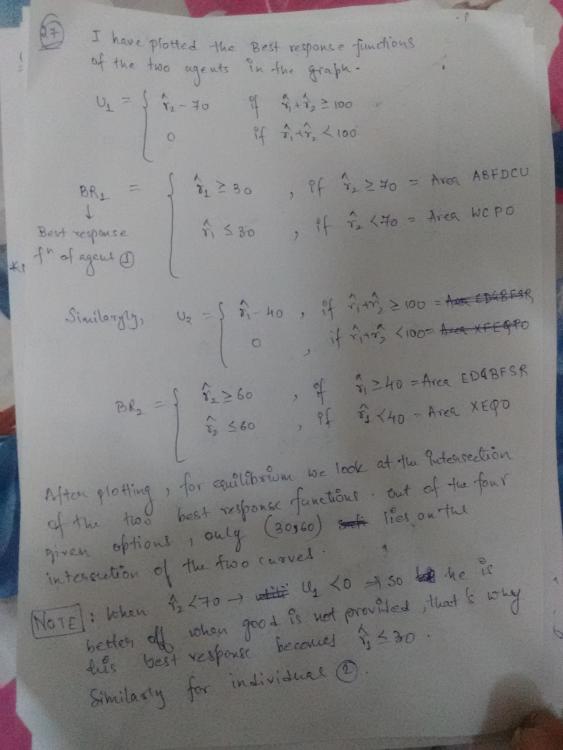 27 I have plotted the Best response functions
of the two agents in the graph.
U1 = { r̂2 - 70 if r̂1 + r̂2 ≥ 100
0 if r̂1 + r̂2 < 100
BR1 = { r̂1 ≥ 30 , if r̂2 ≥ 70 = Area ABFDCU
↓
Best response r̂1 ≤ 30 , if r̂2 < 70 = Area WCPO
fⁿ of agent ①
Similaryly, U2 = { r̂1 - 40 , if r̂1 + r̂2 ≥ 100
0 , if r̂1 + r̂2 < 100
BR2 = { r̂2 ≥ 60 , if r̂1 ≥ 40 = Area EDGBFSR
r̂2 ≤ 60 , if r̂1 < 40 = Area XEQO
After plotting, for equilibrium we look at the intersection
of the two best response functions. out of the four
given options, only (30,60) lies on the
intersection of the two curves.
NOTE : When r̂2 < 70 → U1 < 0 ⇒ so he is
better off when good is not provided, that's why
his best response becomes r̂1 ≤ 30.
Similarly for individual ②.